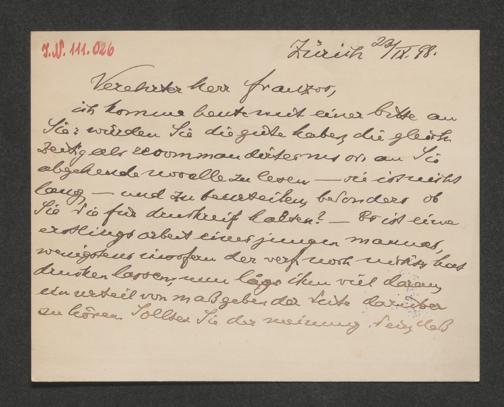 J.N. 111.026
Zürich 22/IX. 98.
Verehrter herr franzos,
ich komme heute mit einer bitte an
Sie: würden Sie die güte haben, die gleich-
zeitig als an Sie
abgehende novelle zu lesen — sie ist nicht
lang, — und zu beurteilen, besonders ob
Sie sie für druckreif halten? — Es ist eine
erstlingsarbeit eines jungen mannes,
wenigstens insofern der verf. noch nichts hat
drucken lassen, nun läge ihm viel daran,
ein urteil von maßgebender seite darüber
zu hören. Sollten Sie der meinung sein, daß